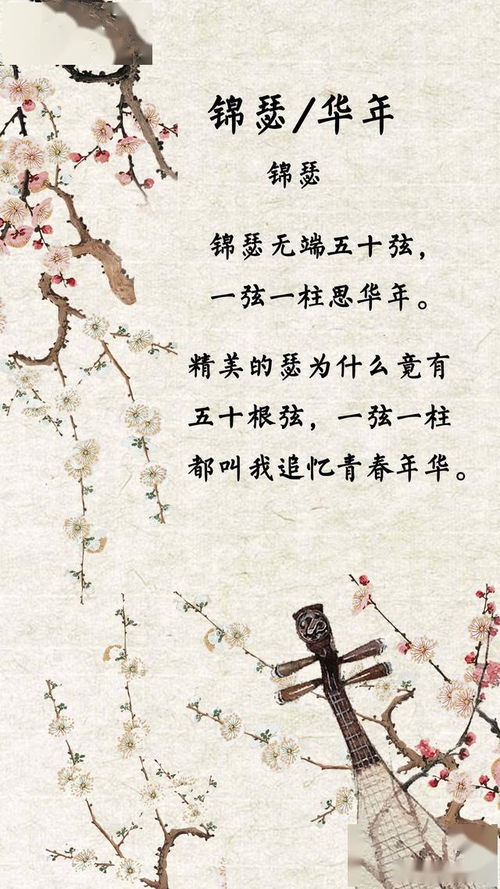 锦瑟/华年
锦瑟
锦瑟无端五十弦，
一弦一柱思华年。
精美的瑟为什么竟有
五十根弦，一弦一柱
都叫我追忆青春年华。